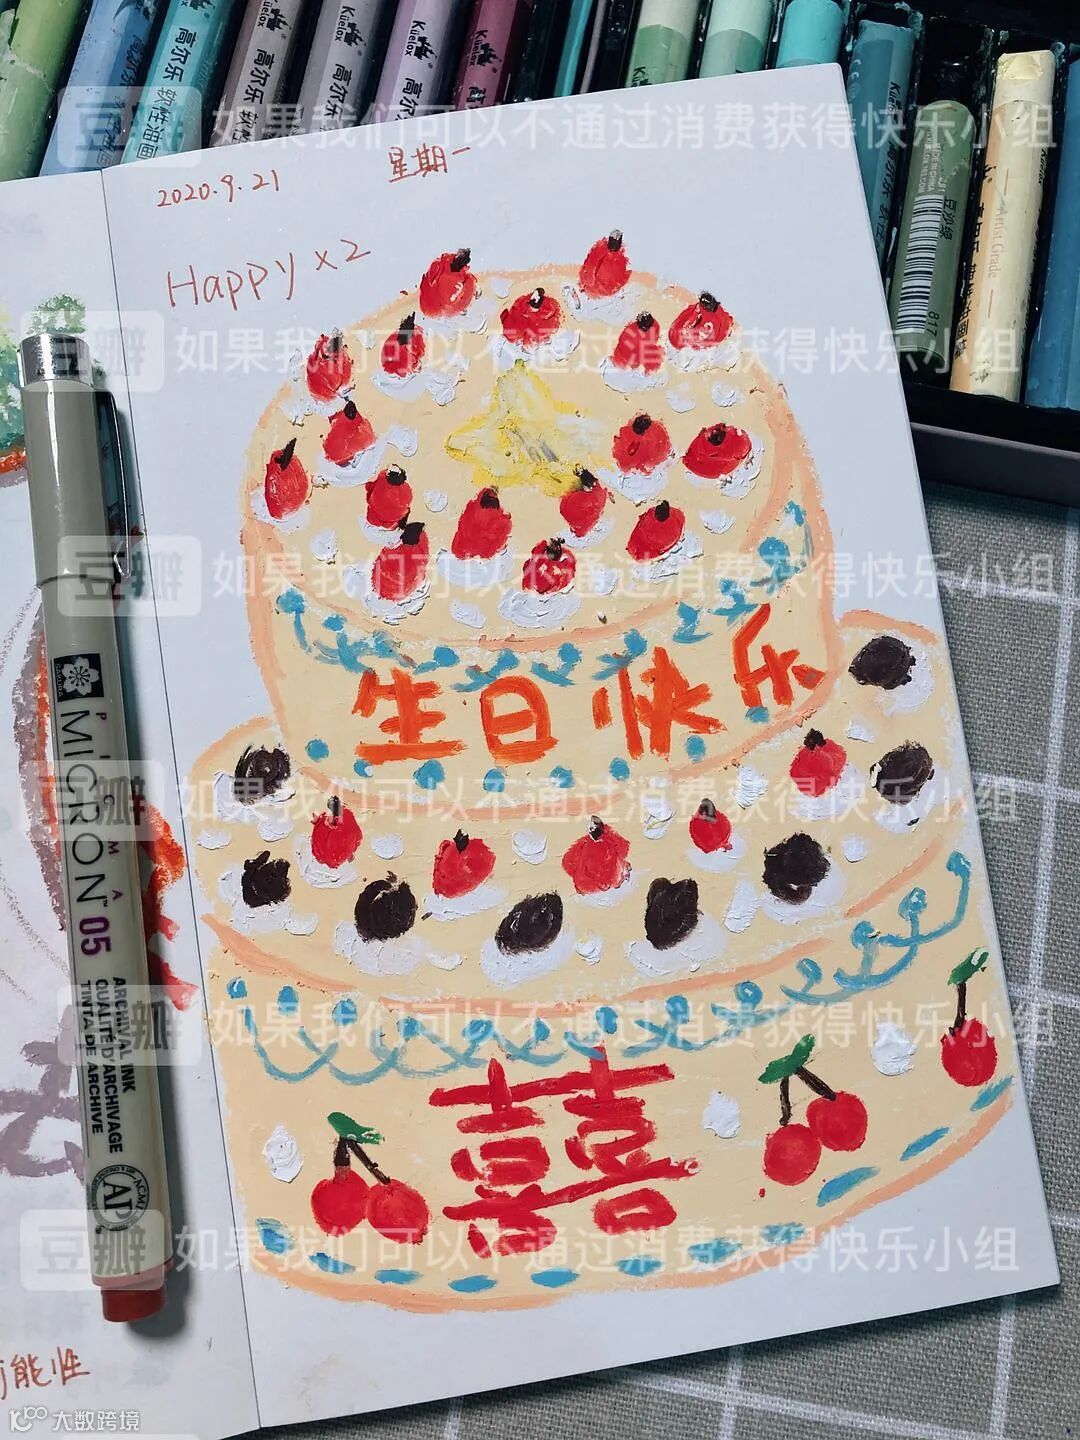 Kiiefox
高尔乐
软性油画
Kiiefox
高尔乐
软性油画
Kiiefox
高尔乐
软性
Kiiefox
高尔乐
Kiiefox
高尔乐
Kiiefox
豆瓣 如果我们可以不通过消费获得快乐小组
2020.9.21
星期一
Happy x2
MADE IN CHINA
豆沙绿
817
Artist Grade
豆瓣 如果我们可以不通过消费获得快乐小组
豆瓣 如果我们可以不通过消费获得快乐小组
生日快乐
豆瓣 如果我们可以不通过消费获得快乐小组
SAKURA
PIGMA
MICRON™ 05
ARCHIVAL INK
QUALITÉ D'ARCHIVAGE
TINTA DE ARCHIVE
ACMI
AP
豆瓣 如果我们可以不通过消费获得快乐小组
囍
豆瓣 如果我们可以不通过消费获得快乐小组
能性
大数跨境